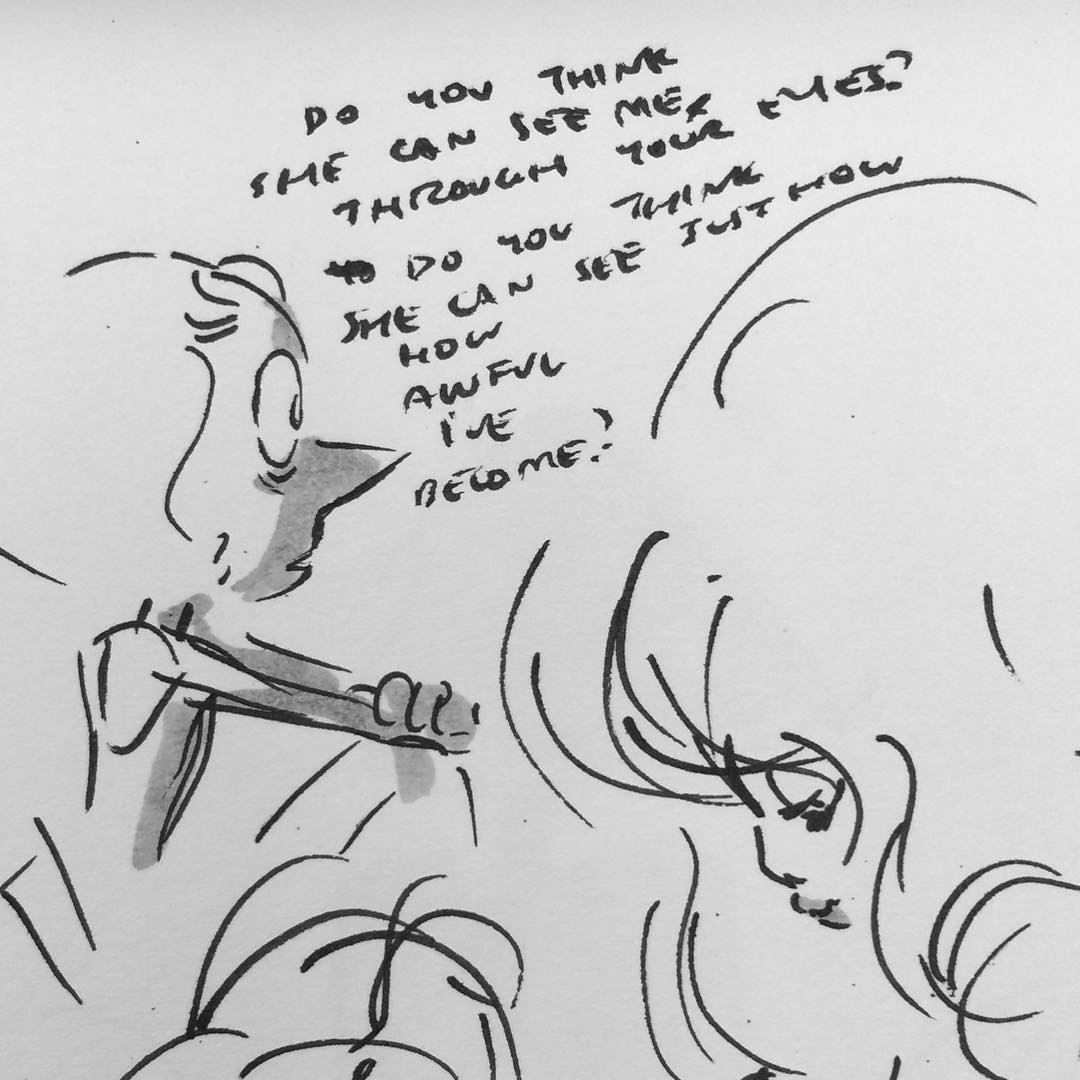 DO YOU THINK
SHE CAN SEE ME
THROUGH YOUR EYES?
DO YOU THINK
SHE CAN SEE JUST HOW
HOW
AWFUL
I'VE
BECOME?